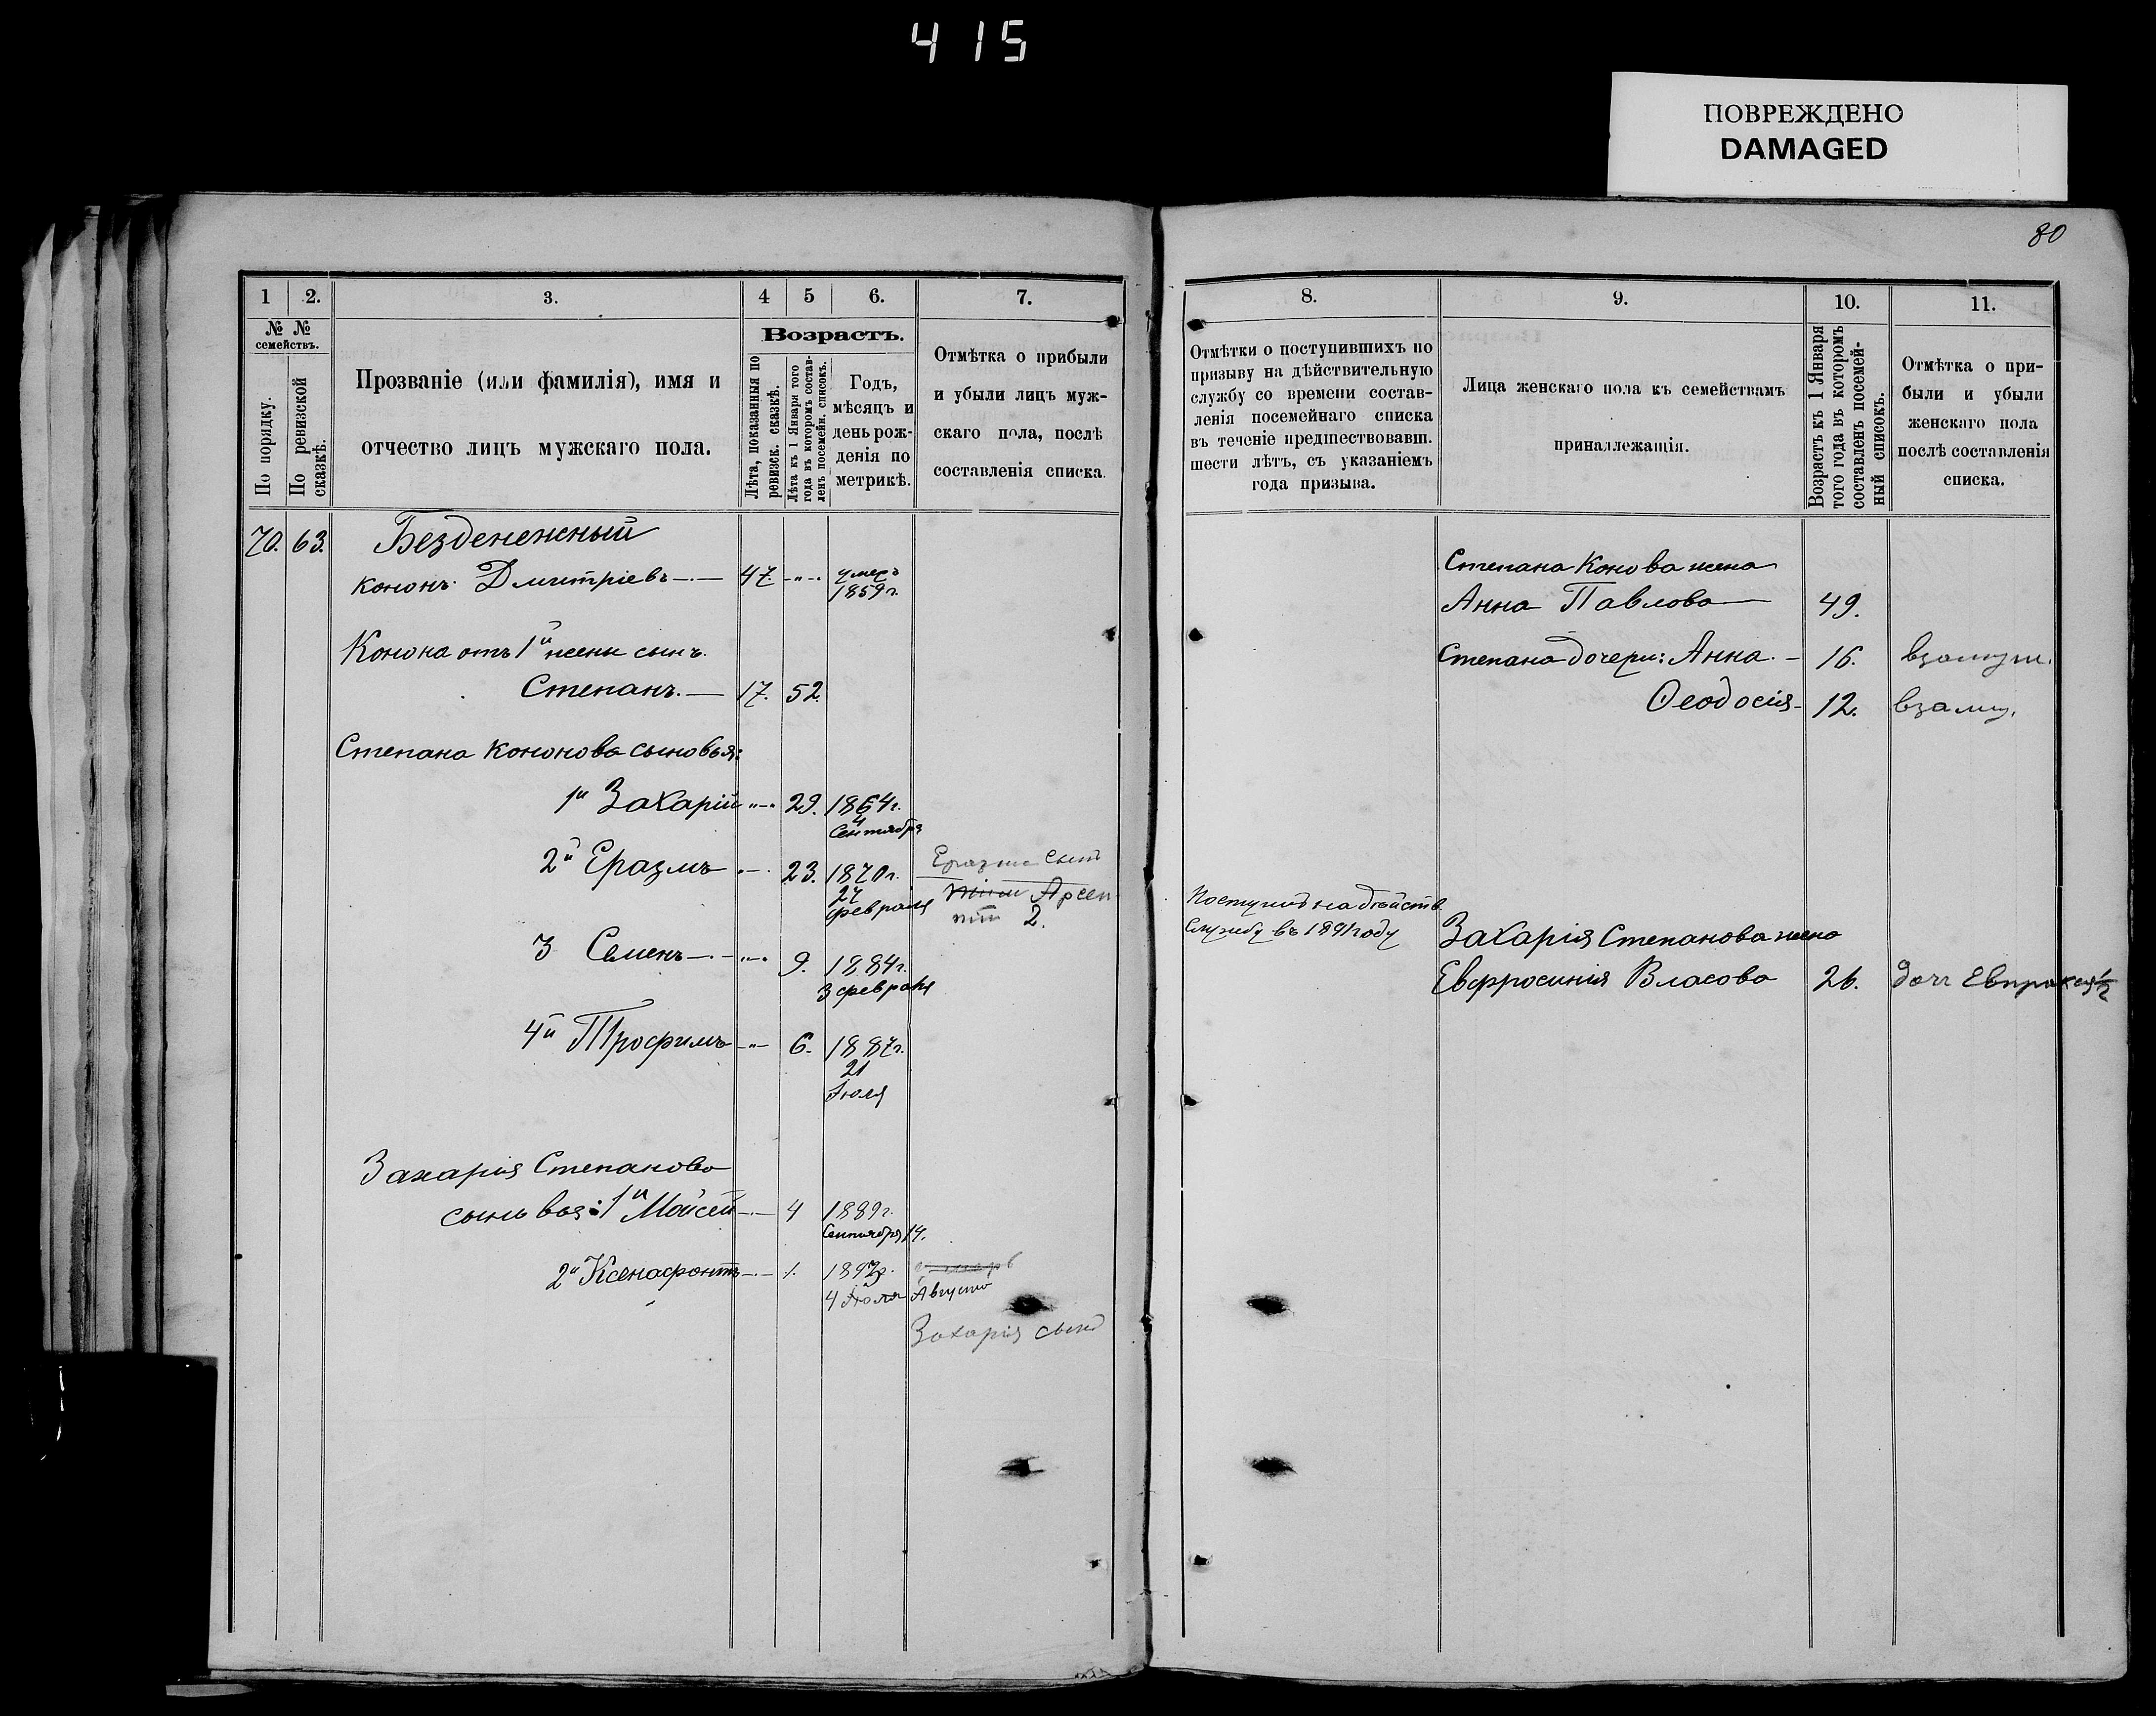 415
ПОВРЕЖДЕНО
DAMAGED
80
1
2.
3.
4
5
6.
7.
№ №
семействъ.
По порядку.
По ревизской
сказкѣ.
Прозваніе (или фамилія), имя и
отчество лицъ мужскаго пола.
Возрастъ.
Лѣта, показанныя по
ревизск. сказкѣ.
Лѣта къ 1 Января того
года въ которомъ состав-
ленъ посемейн. списокъ.
Годъ,
мѣсяцъ и
день рож-
денія по
метрикѣ.
Отмѣтка о прибыли
и убыли лицъ муж-
скаго пола, послѣ
составленія списка.
70. 63. Безденежный
Кононъ Дмитріевъ 47. -„- умеръ
1859 г.
Конона отъ 1й жены сынъ.
Степанъ. 17. 52.
Степана Кононова сыновья:
1й Захарій „ 29. 1864 г.
4
Сентября
2й Еразмъ 23. 1870 г.
27
февраля
Еразма сынъ
Арсен
2.
3 Семенъ „ 9. 1884 г.
3 февраля
4й Трофимъ -„- 6. 1887 г.
21
Іюля
Захарія Степанова
сыновья: 1й Мойсей 4 1889 г.
Сентября 14.
2й Ксенафонтъ 1. 1892 г.
4 Іюля
Августа
Захарія сынъ
8.
9.
10.
11.
Отмѣтки о поступившихъ по
призыву на дѣйствительную
службу со времени состав-
ленія посемейнаго списка
въ теченіе предшествовавш.
шести лѣтъ, съ указаніемъ
года призыва.
Лица женскаго пола къ семействамъ
принадлежащія.
Возрастъ къ 1 Января
того года въ которомъ
составленъ посемей-
ный списокъ.
Отмѣтка о при-
были и убыли
женскаго пола
послѣ составленія
списка.
Степана Конова жена
Анна Павлова 49.
Степана дочери: Анна. 16. взамуж.
Ѳеодосія 12. взаму.
Поступилъ на дѣйств.
службу въ 1891 году
Захарія Степанова жена
Евфросинія Власова 26. доч Евпраксія 1/2